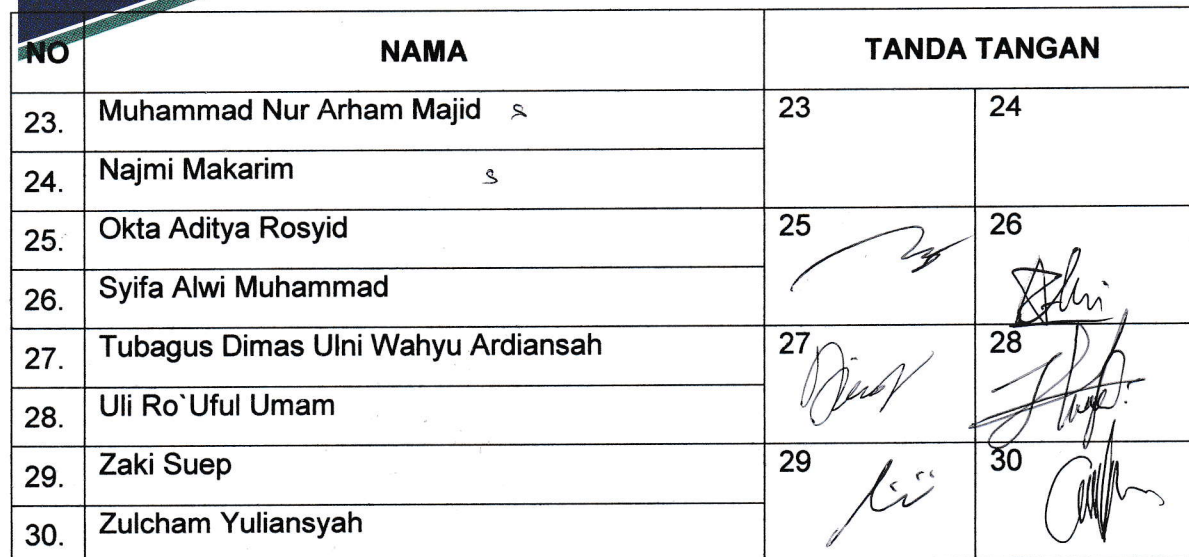 NO NAMA TANDA TANGAN
23. Muhammad Nur Arham Majid s 23 24
24. Najmi Makarim s
25. Okta Aditya Rosyid 25 26
26. Syifa Alwi Muhammad
27. Tubagus Dimas Ulni Wahyu Ardiansah 27 28
28. Uli Ro`Uful Umam
29. Zaki Suep 29 30
30. Zulcham Yuliansyah